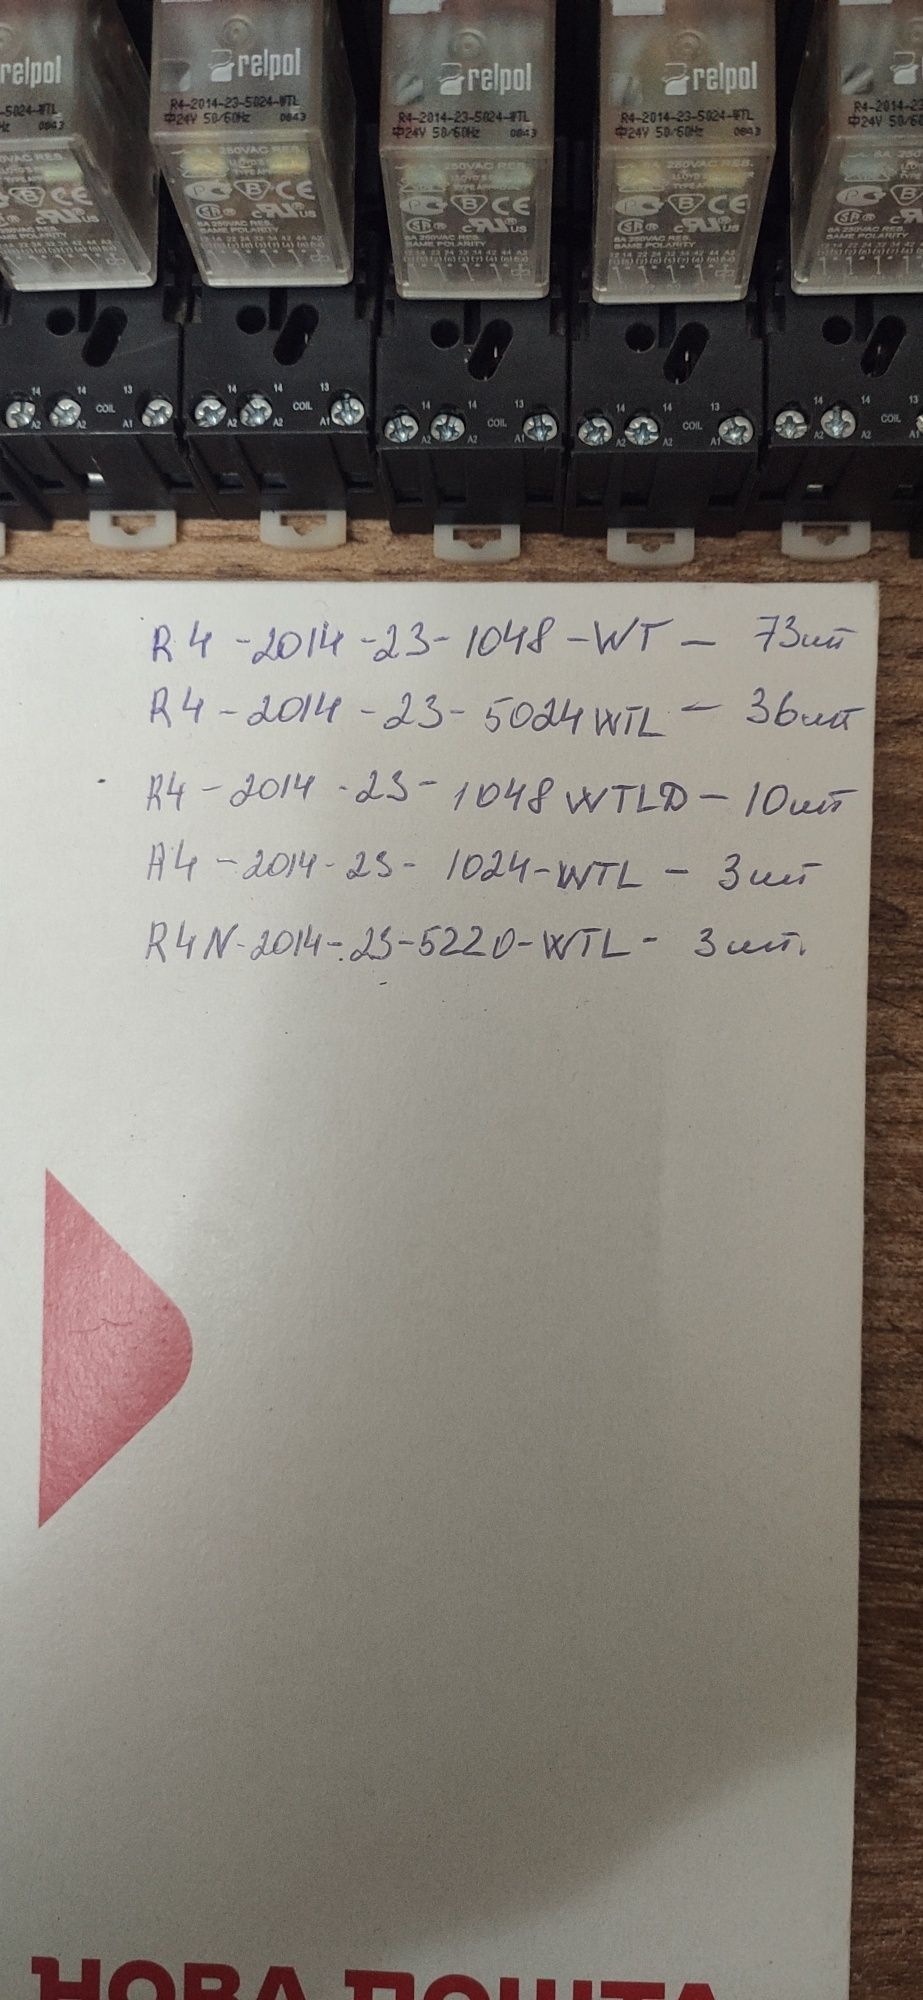 relpol relpol relpol relpol
-5024-WTL R4-2014-23-5024-WTL R4-2014-23-5024-WTL R4-2014-23-5024-WTL R4-2014-23
Hz 0843 24V 50/60Hz 0843 24V 50/60Hz 0843 24V 50/60Hz 0843 24V 50/60
250VAC RES. 250VAC RES. 250VAC RES.
B CE B CE B CE B CE
c US c US c US
6A 250VAC RES 6A 250VAC RES 6A 250VAC RES
SAME POLARITY SAME POLARITY SAME POLARITY SAME POLARITY
14 14 13 14 14 13 14 14 13 14 14 13 14 14
A2 A2 COIL A1 A2 A2 COIL A1 A2 A2 COIL A1 A2 A2 COIL A1 A2 A2 COIL
R4-2014-23-1048-WT - 73шт
R4-2014-23-5024WTL - 36шт
R4-2014-23-1048WTLD - 10шт
R4-2014-23-1024-WTL - 3шт
R4N-2014-23-5220-WTL - 3шт.
НОВА ПОШТА